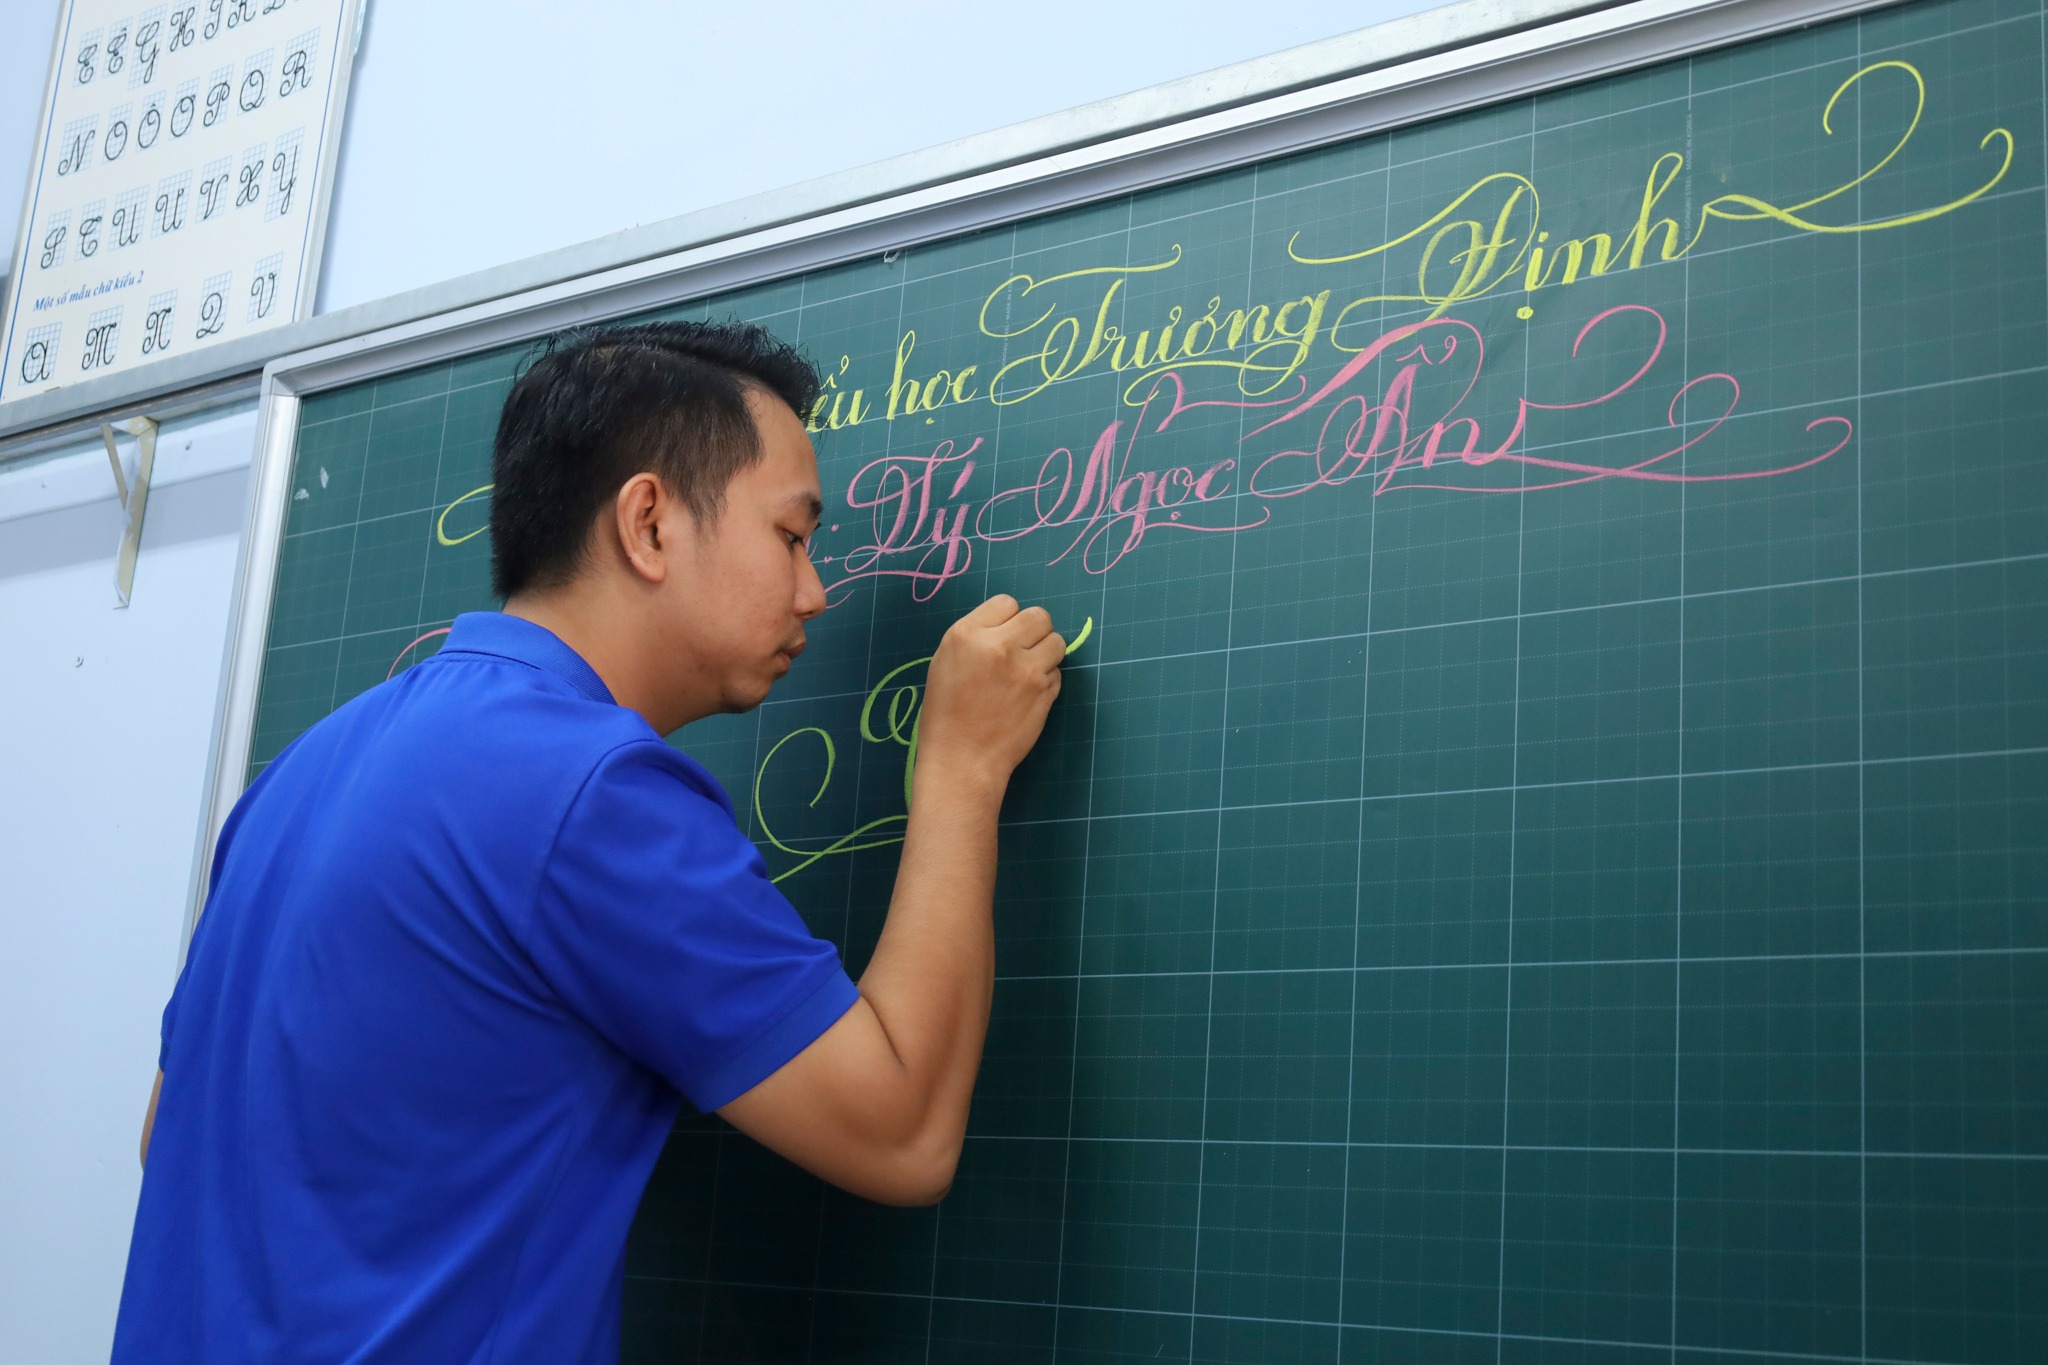 E Ê G H I K L
N O Ô Ơ P Q R
S T U Ư V X Y
Một số mẫu chữ kiểu 2
A M N Q V
học Trương Định
Lý Ngọc Ẩn